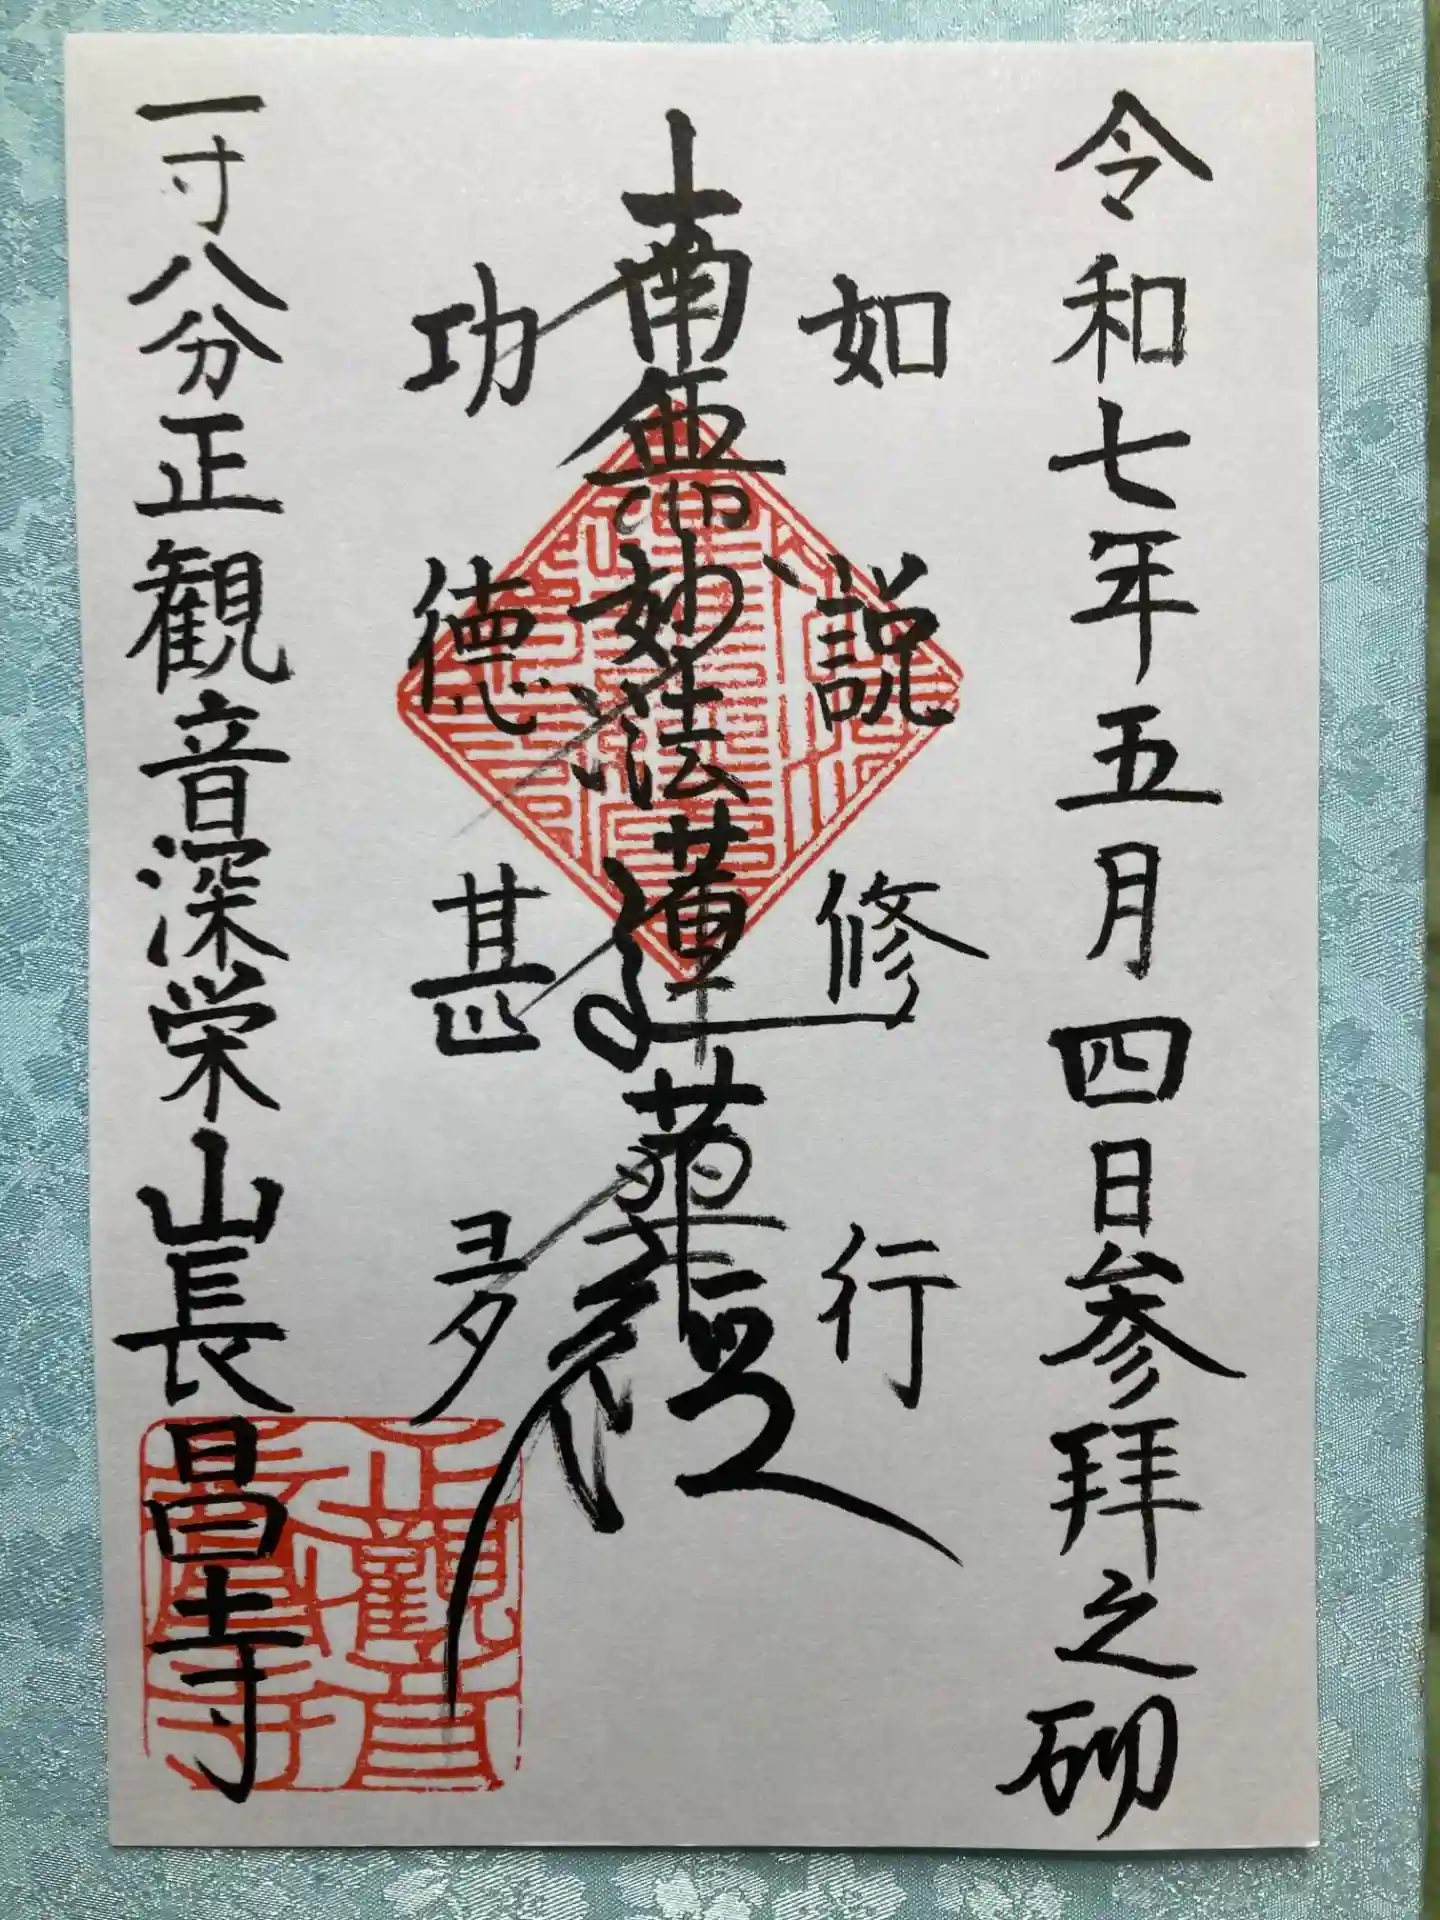 令和七年五月四日参拝之砌
如説修行
南無妙法蓮華経
功徳甚多
一寸八分正観音深栄山長昌寺
正觀音
長昌寺